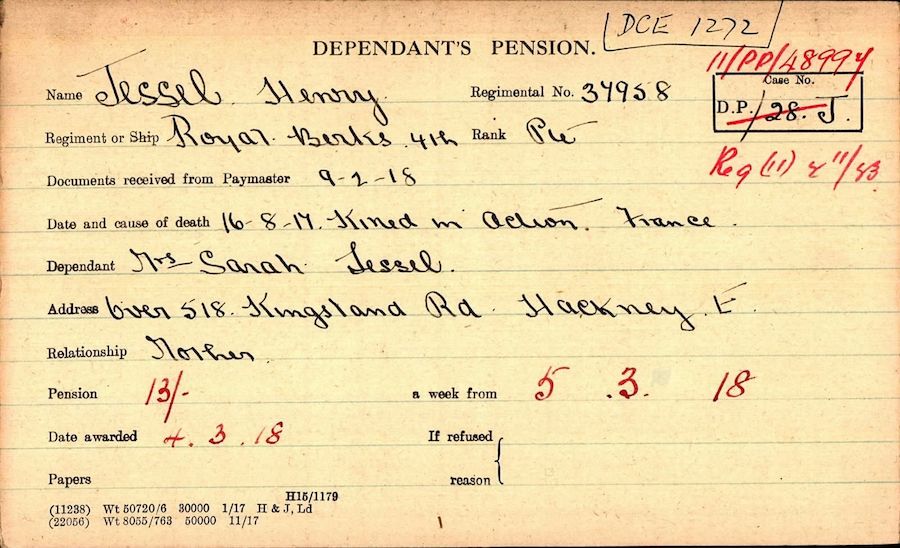 DCE 1272
DEPENDANT'S PENSION.
11/PP/48994
Name Jessel. Henry. Regimental No. 37958
Case No.
D.P. 28. J.
Regiment or Ship Royal. Berks. 4th Rank Pte
Reg (11)
Documents received from Paymaster 9-2-18
Date and cause of death 16-8-17. Killed in Action. France.
Dependant Mrs Sarah Jessel.
Address Over 518. Kingsland Rd. Hackney. E.
Relationship Mother.
Pension 13/- a week from 5 .3. 18
Date awarded 4. 3. 18 If refused
Papers reason
H15/1179
(11238) Wt 50720/6 30000 1/17 H & J, Ld
(22056) Wt 8055/763 50000 11/17